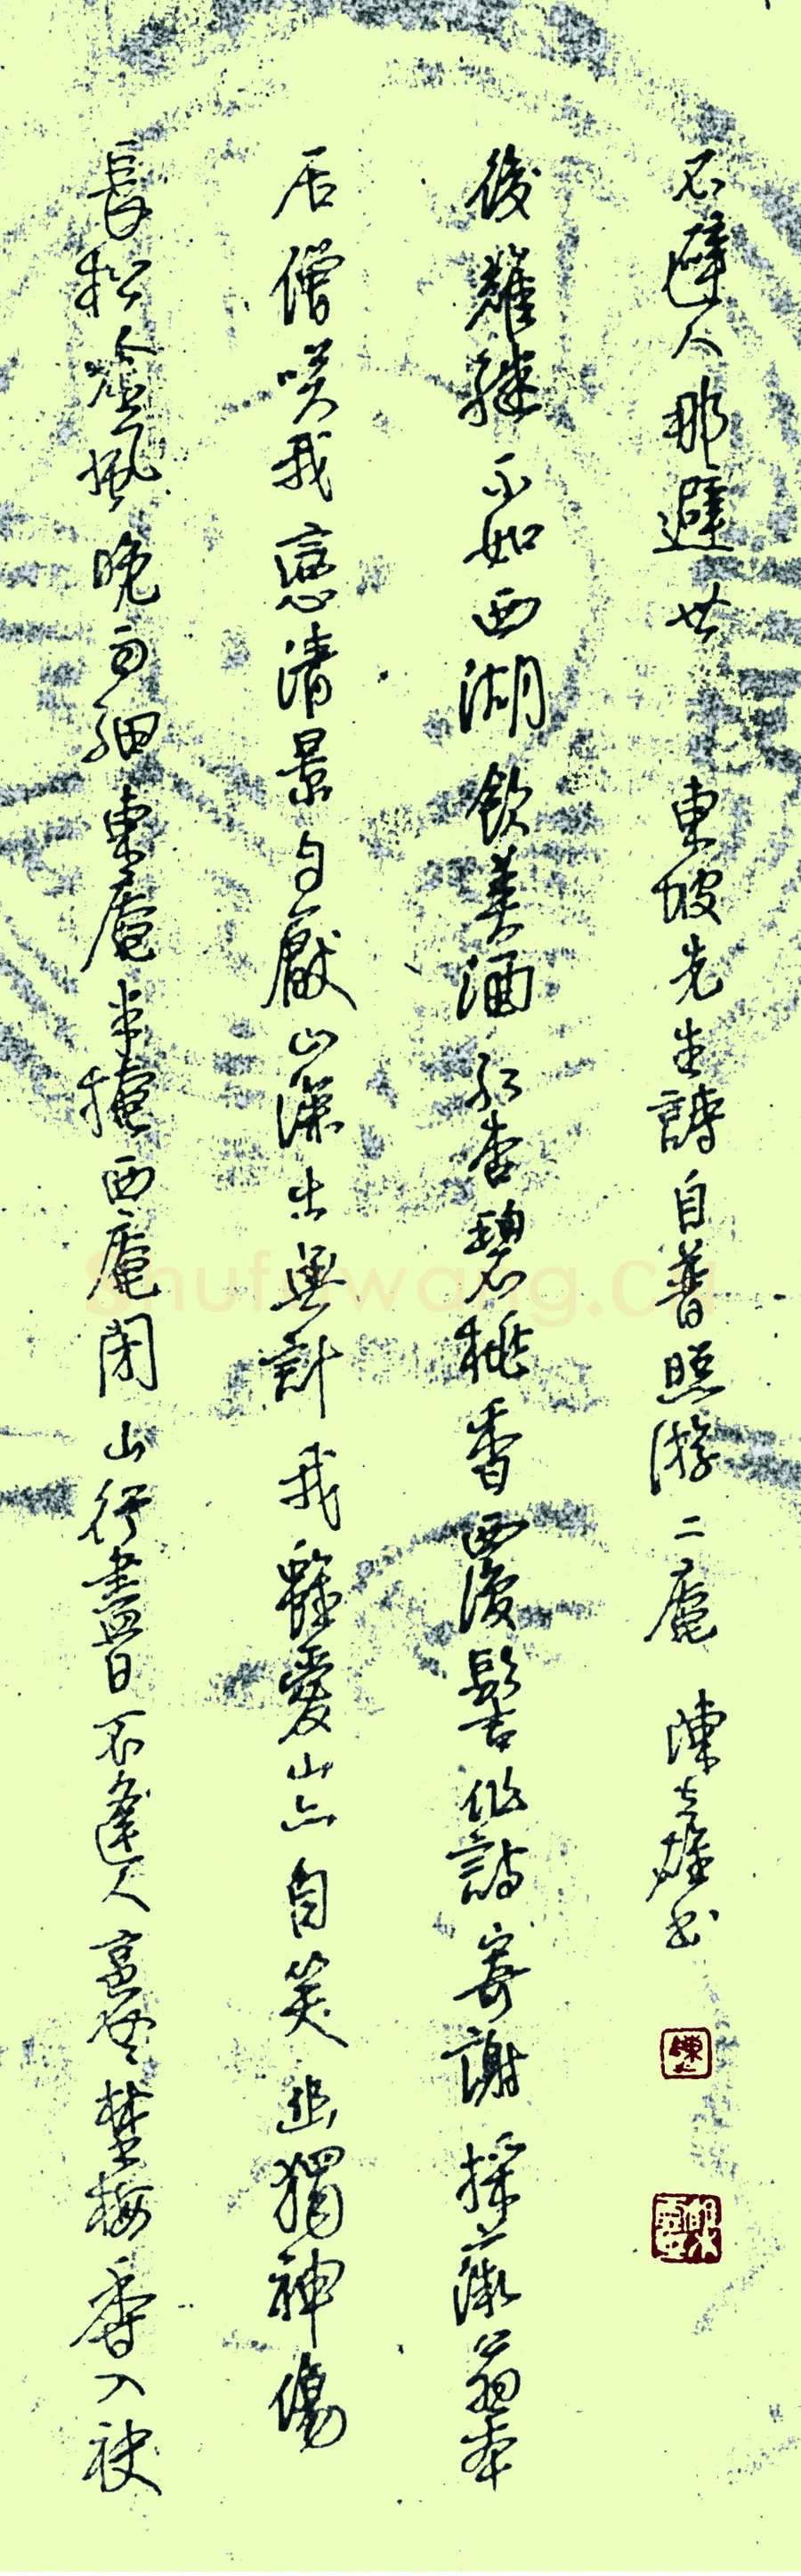 長松吟風晚雨細東庵半掩西庵閉山行盡日不逢人裛々埜梅香入袂
居僧咲我戀清景自厭山深出無計我雖愛山亦自笑幽獨神傷
後難繼不如西湖飲美酒紅杏碧桃香覆髻作詩寄謝採薇翁本
不避人那避世 東坡先生詩自普照游二庵 陳雄书
shufawang.cn